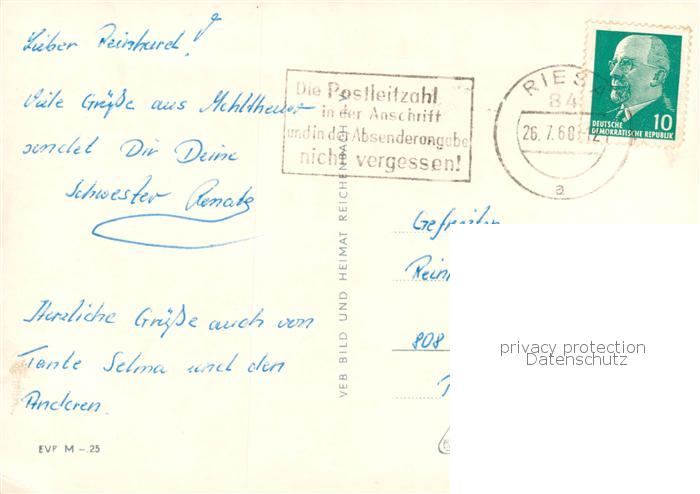 Lieber Reinhard!
Viele Grüße aus Mehltheuer
sendet Dir Deine
Schwester Renate
Herzliche Grüße auch von
Tante Selma und den
Anderen.
EVP M -.25
VEB BILD UND HEIMAT REICHENBACH
Die Postleitzahl
in der Anschrift
und in der Absenderangabe
nicht vergessen!
RIESA
84
26.7.68-12
a
10
DEUTSCHE
DEMOKRATISCHE REPUBLIK
Gefreiten
Rein
808
privacy protection
Datenschutz